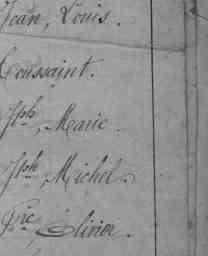 Jean, Louis.
Toussaint.
Jph, Marie
Jph, Michel.
Fre, Olivier